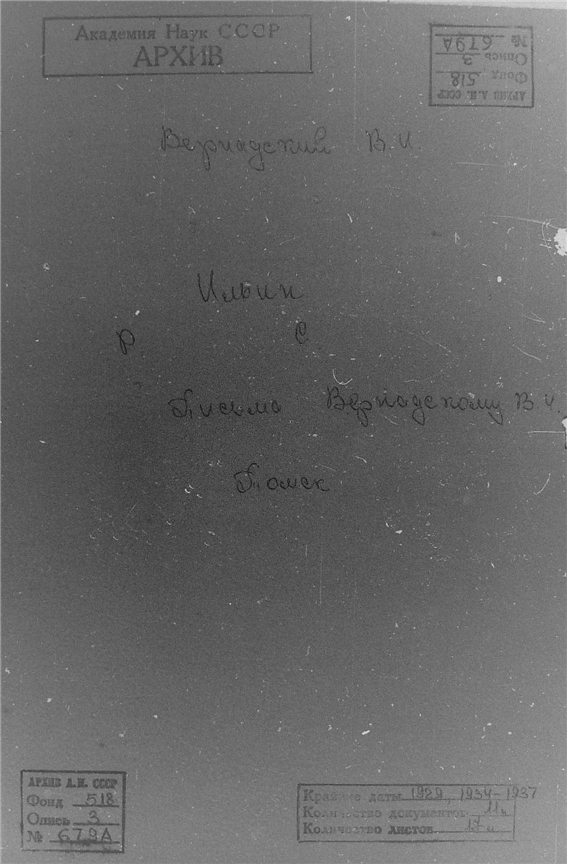 Академия Наук СССР
АРХИВ
АРХИВ А.Н. СССР
Фонд 518
Опись 3
№ 679А
Вернадский В.И.
Ильин
Р. С
Письма Вернадскому В.И.
Томск
АРХИВ А.Н. СССР
Фонд 518
Опись 3
№ 679А
Крайние даты 1929, 1934-1937
Количество документов 11
Количество листов 17